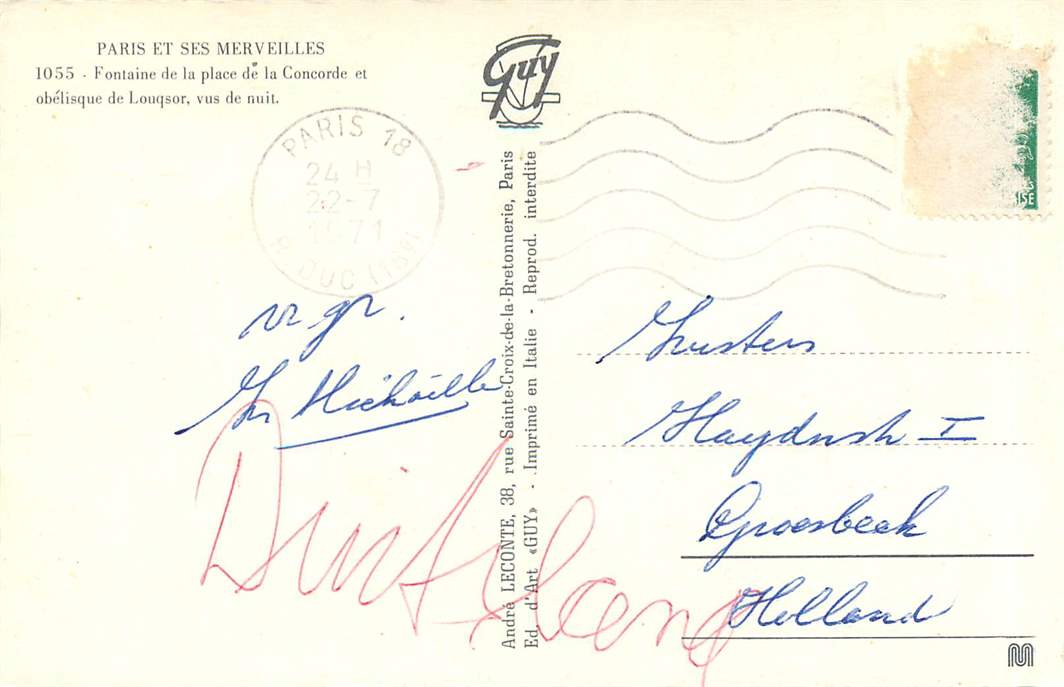 PARIS ET SES MERVEILLES
1055 - Fontaine de la place de la Concorde et
obélisque de Louqsor, vus de nuit.
Guy
PARIS 18
24 H
22-7
1971
R. DUC (18e)
vr gr.
Fr Michaëlle
André LECONTE, 38, rue Sainte-Croix-de-la-Bretonnerie, Paris
Ed. d'Art «GUY» - Imprimé en Italie - Reprod. interdite
Zusters
Haydnstr I
Groesbeek
Holland
ISE
M